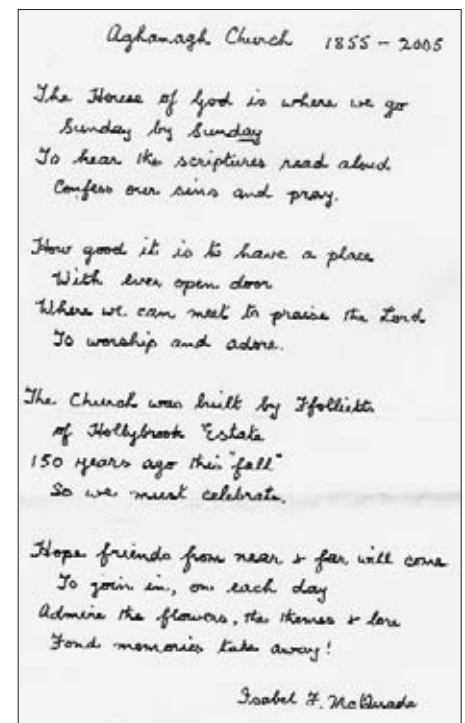 Aghanagh Church 1855 - 2005
The House of God is where we go
Sunday by Sunday
To hear the scriptures read aloud
Confess our sins and pray.
How good it is to have a place
With ever open door
Where we can meet to praise the Lord
To worship and adore.
The Church was built by Ffolliotts
of Hollybrook Estate
150 years ago this "fall"
So we must celebrate.
Hope friends from near & far will come
To join in, on each day
Admire the flowers, the themes & lore
Fond memories take away!
Isabel F. McQuade